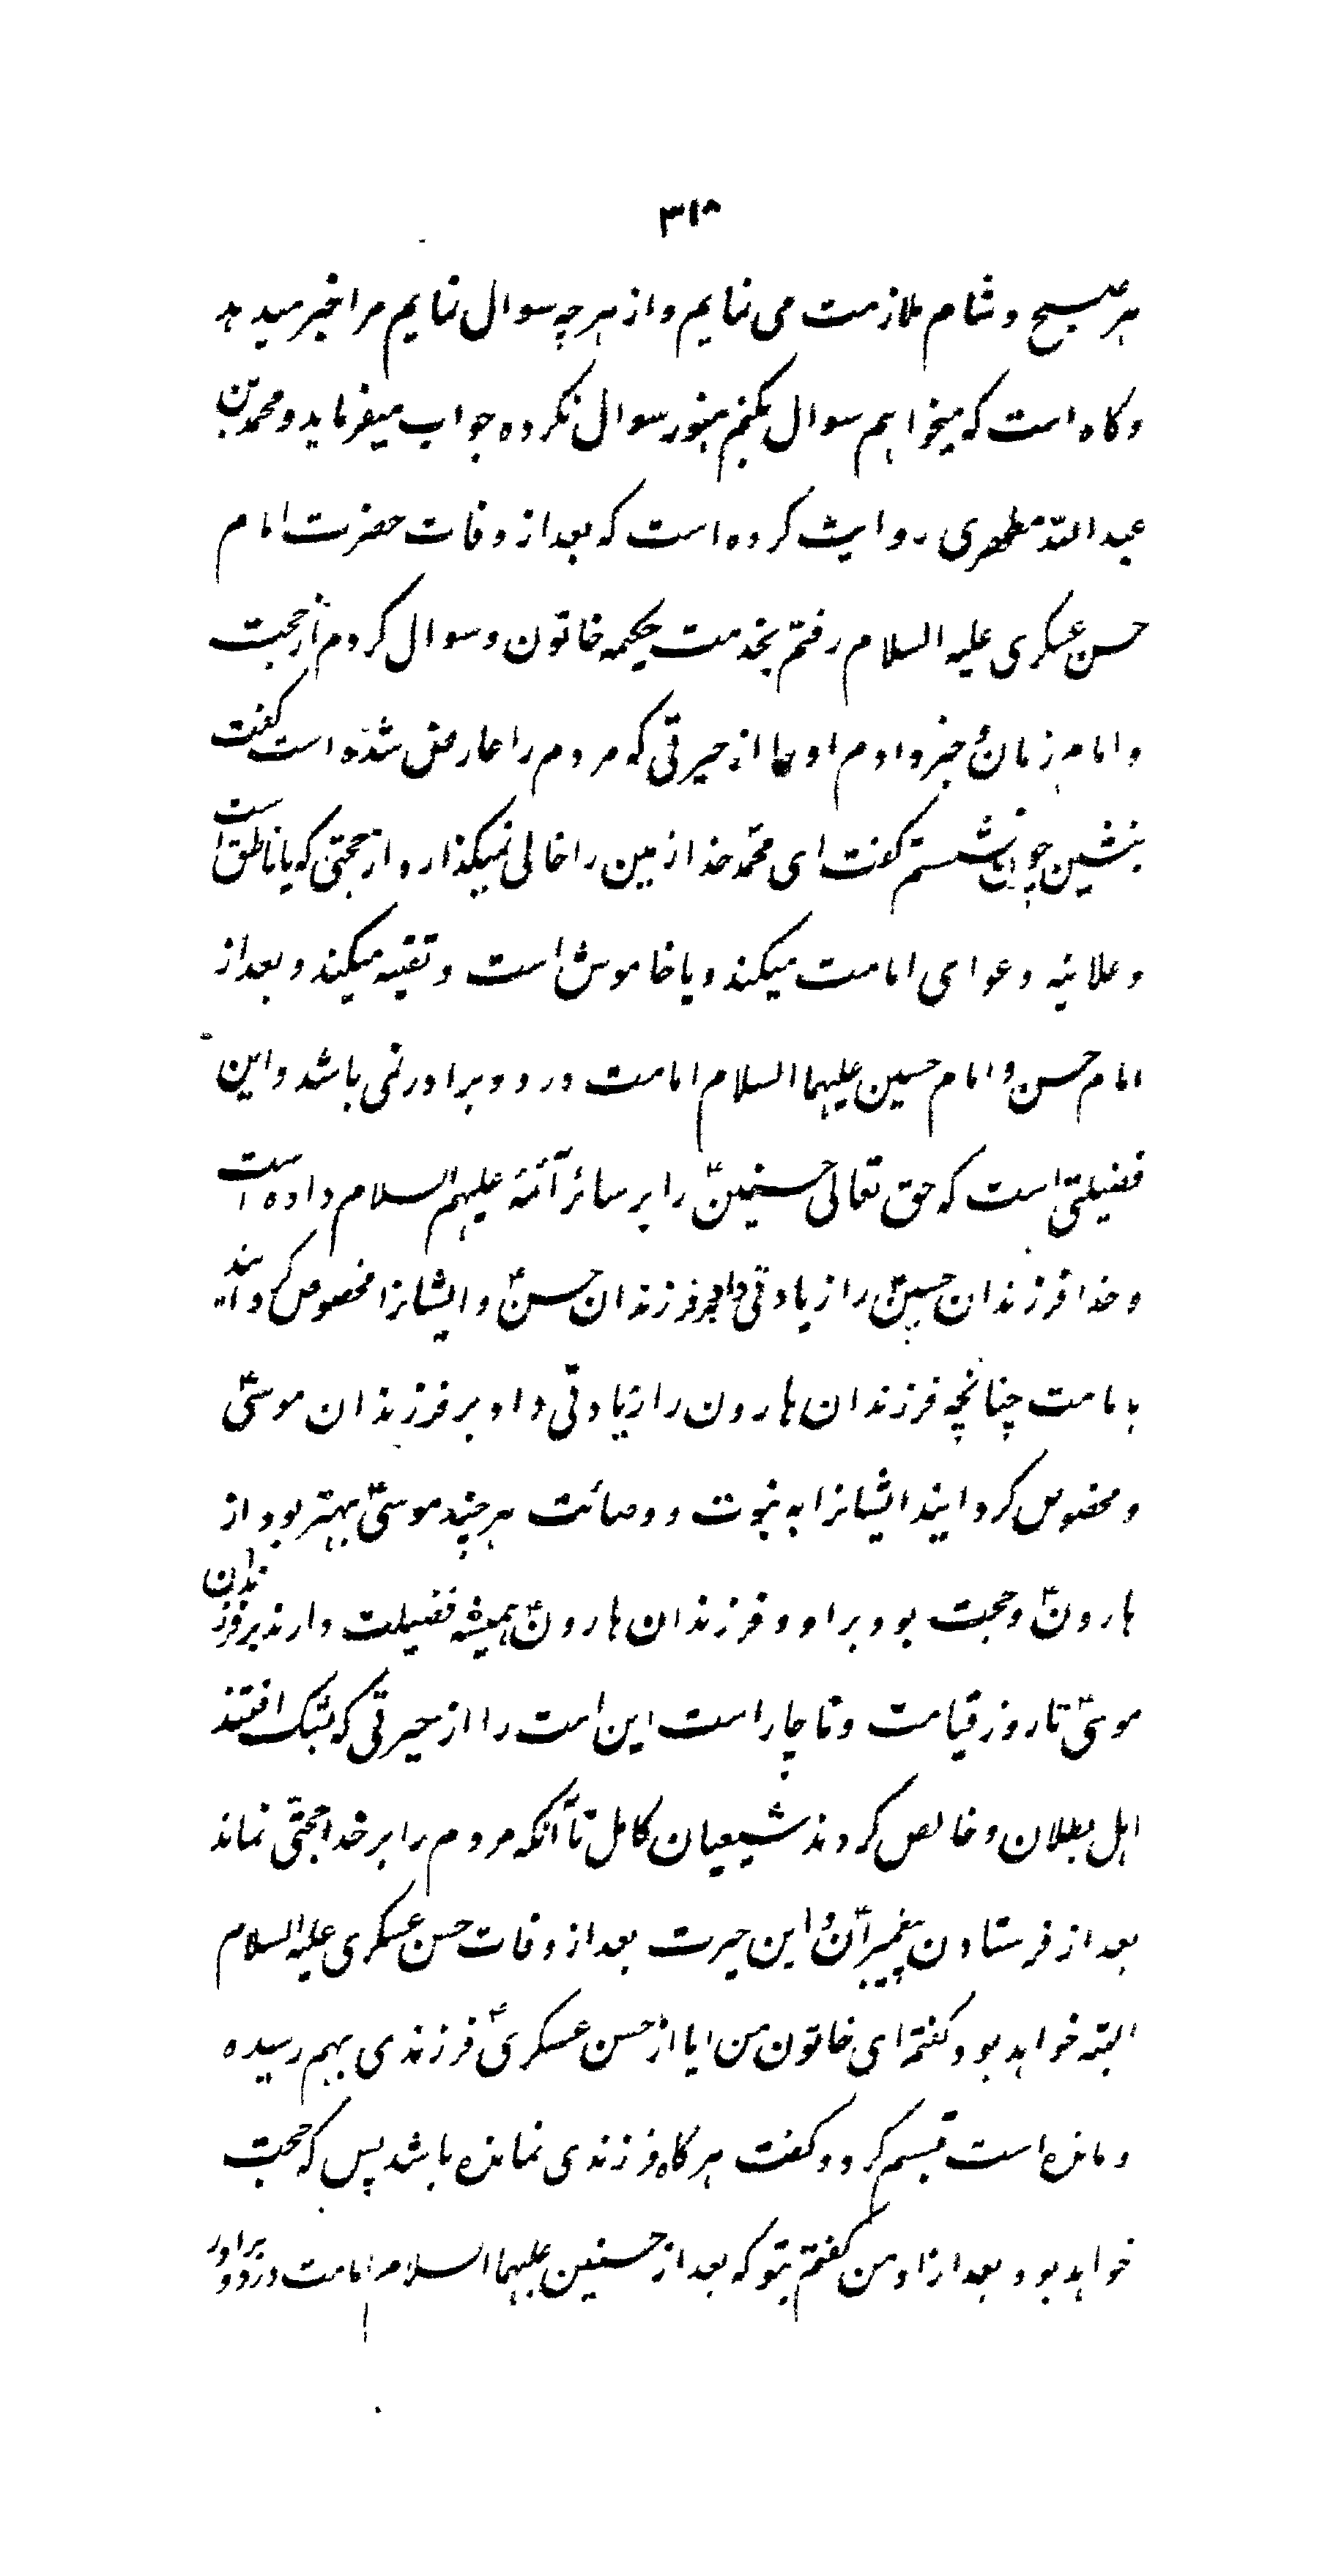 ۳۱۸
هر صبح و شام ملازمت می نمایم و از هر چه سوال نمایم مرا خبر میدهد
و کاه است که میخواهم سوال بکنم هنوز سوال نکرده جواب میفرماید و محمد بن
عبد الله مطهری روایت کرده است که بعد از وفات حضرت امام
حسن عسکری علیه السلام رفتم بخدمت حکیمه خاتون و سوال کردم از حجت
و امام زمان و خبر دادم او را از حیرتی که مردم را عارض شده است گفت
بنشین چون نشستم گفت ای محمّد خدا زمین را خالی نمیکذارد از حجتی که یا ناطق است
و علانیه دعوای امامت میکند و یا خاموش است و تقیه میکند و بعد از
امام حسن و امام حسین علیهما السلام امامت در دو برادر نمی باشد و این
فضیلتی است که حق تعالی حسنینؑ را بر سائر آئمه علیهم السلام داده است
و خدا فرزندان حسینؑ را زیادتی داد بر فرزندان حسنؑ و ایشانرا مخصوص کردانید
بامامت چنانچه فرزندان هارون را زیادتی داد بر فرزندان موسیؑ
و مخصوص کردانید ایشانرا به نبوت و وصائت هر چند موسیؑ بهتر بود از
هارونؑ و حجت بود بر او و فرزندان هارونؑ همیشه فضیلت دارند بر فرزندان
موسیؑ تا روز قیامت و ناچار است این امت را از حیرتی که بشک افتند
اهل بطلان و خالص کردند شیعیان کامل تا آنکه مردم را بر خدا حجتی نماند
بعد از فرستادن پیغمبران و این حیرت بعد از وفات حسن عسکری علیه السلام
البته خواهد بود گفتم ای خاتون من ایا از حسن عسکریؑ فرزندی بهم رسیده
و مانده است تبسم کرد و گفت هر کاه فرزندی نمانده باشد پس که حجت
خواهد بود بعد از او من گفتم بتو که بعد از حسنین علیهما السلام امامت در دو برادر